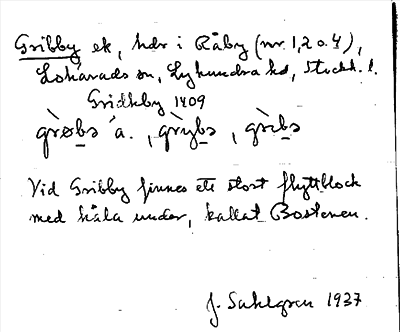 Gribby ek, hdr i Råby (nr. 1, 2 o. 4),
Lohärads sn, Lyhundra hd, Stockh. l.
Gridhby 1409
grø̀bə a., grỳbə, grìbə
Vid Gribby finnes ett stort flyttblock
med håla under, kallat Bostenen.
J. Sahlgren 1937